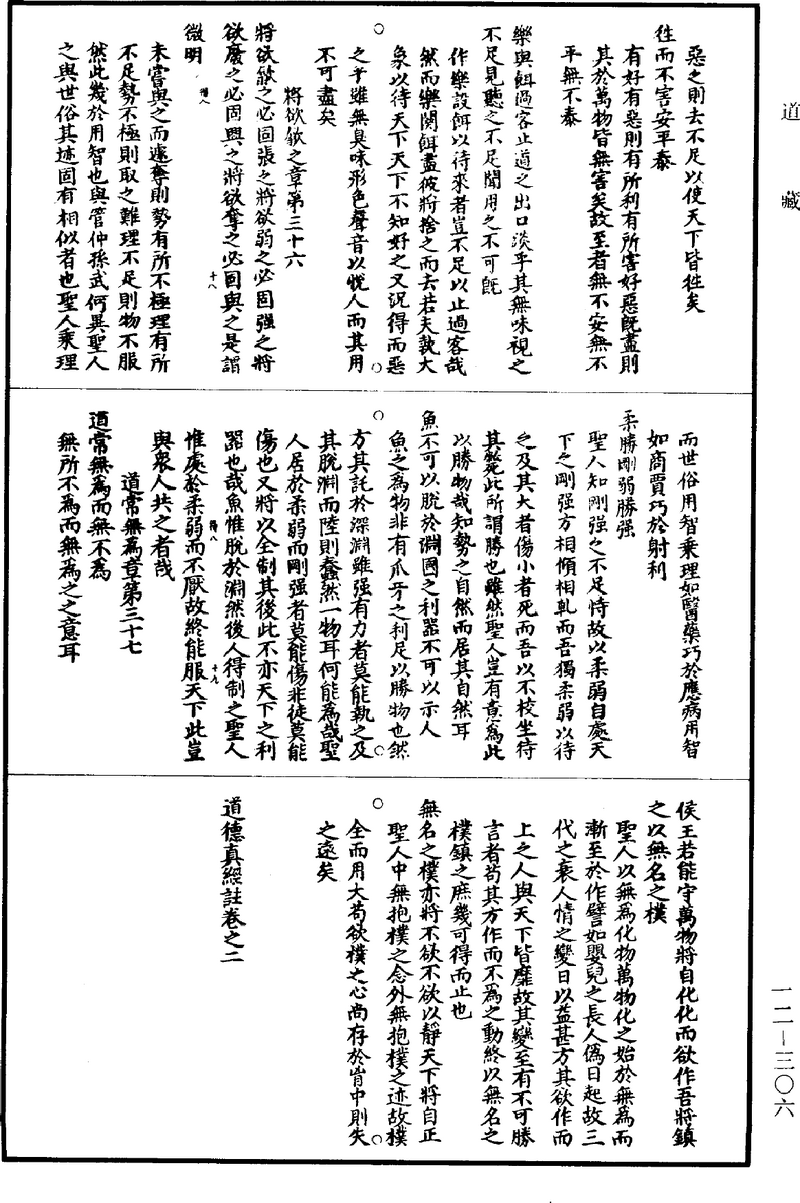 道藏
惡之則去不足以使天下皆往矣
往而不害安平泰
有好有惡則有所利有所害好惡既盡則
其於萬物皆無害矣故至者無不安無不
平無不泰
樂與餌過客止道之出口淡乎其無味視之
不足見聽之不足聞用之不可既
作樂設餌以待來者豈不足以止過客哉
然而樂闋餌盡彼將捨之而去若夫執大
象以待天下天下不知好之又況得而惡
之乎雖無臭味形色聲音以悅人而其用
不可盡矣
將欲歙之章第三十六
將欲歙之必固張之將欲弱之必固强之將
欲廢之必固興之將欲奪之必固與之是謂
微明
十八
未嘗與之而遽奪則勢有所不極理有所
不足勢不極則取之難理不足則物不服
然此幾於用智也與管仲孫武何異聖人
之與世俗其迹固有相似者也聖人乘理
而世俗用智乘理如醫藥巧於應病用智
如商賈巧於射利
柔勝剛弱勝强
聖人知剛强之不足恃故以柔弱自處天
下之剛强方相傾相軋而吾獨柔弱以待
之及其大者傷小者死而吾以不校坐待
其斃此所謂勝也雖然聖人豈有意為此
以勝物哉知勢之自然而居其自然耳
魚不可以脫於淵國之利器不可以示人
魚之為物非有爪牙之利足以勝物也然
方其託於深淵雖强有力者莫能執之及
其脫淵而陸則蠢然一物耳何能為哉聖
人居於柔弱而剛强者莫能傷非徒莫能
傷也又將以全制其後此不亦天下之利
器也哉魚惟脫於淵然後人得制之聖人
惟處於柔弱而不厭故終能服天下此豈
十九
與衆人共之者哉
道常無為章第三十七
道常無為而無不為
無所不為而無為之之意耳
侯王若能守萬物將自化化而欲作吾將鎮
之以無名之樸
聖人以無為化物萬物化之始於無為而
漸至於作譬如嬰兒之長人偽日起故三
代之衰人情之變日以益甚方其欲作而
上之人與天下皆靡故其變至有不可勝
言者苟其方作而不為之動終以無名之
樸鎮之庶幾可得而止也
無名之樸亦將不欲不欲以靜天下將自正
聖人中無抱樸之念外無抱樸之迹故樸
全而用大苟欲樸之心尚存於胷中則失
之遠矣
道德真經註卷之二
一二－三〇六